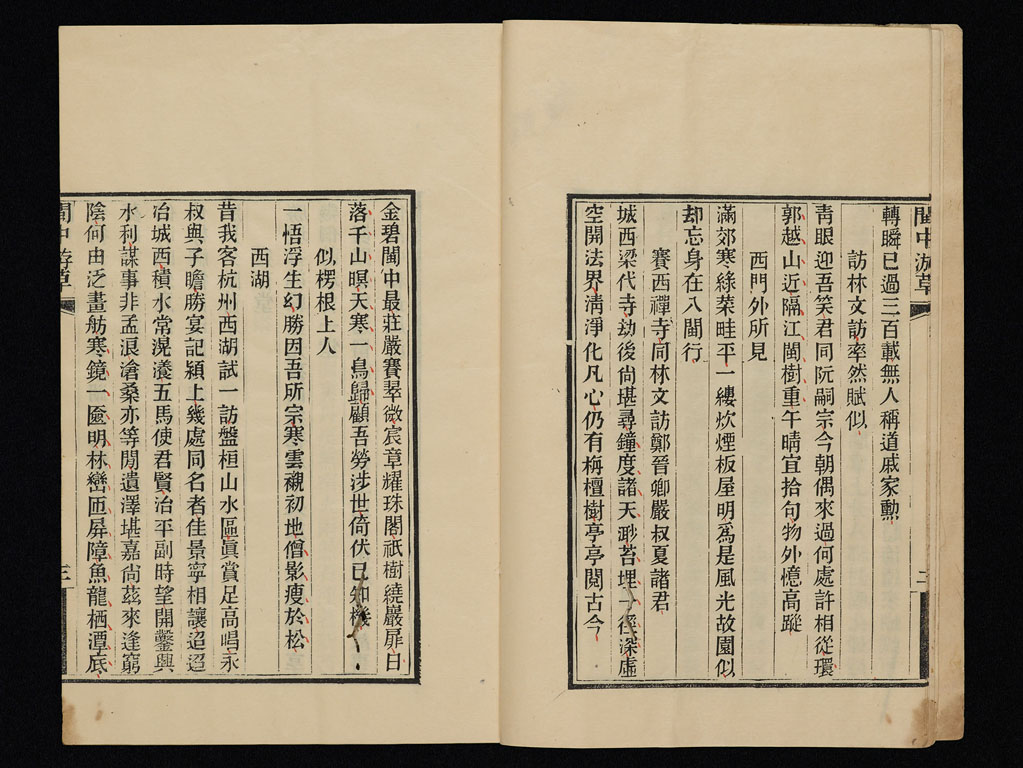 閩中游草
轉瞬已過三百載無人稱道戚家勲
訪林文訪率然賦似
靑眼迎吾笑君同阮嗣宗今朝偶來過何處許相從環
郭越山近隔江閩樹重午晴宜拾句物外憶高蹤
西門外所見
滿郊寒綠菜畦平一縷炊煙板屋明爲是風光故園似
却忘身在入閩行
賽西禪寺同林文訪鄭晉卿嚴叔夏諸君
城西梁代寺劫後尙堪尋鐘度諸天邈苔埋一徑深虛
空開法界淸淨化凡心仍有栴檀樹亭亭閱古今
二
金碧閩中最莊嚴賽翠微宸章耀珠閣祇樹繞巖扉日
落千山暝天寒一鳥歸顧吾勞涉世倚伏已知機
似楞根上人
一悟浮生幻勝因吾所宗寒雲襯初地僧影瘦於松
西湖
昔我客杭州西湖試一訪盤桓山水區眞賞足高唱永
叔與子瞻勝宴記潁上幾處同名者佳景寧相讓迢迢
冶城西積水常滉瀁五馬使君賢治平副時望開鑿興
水利謀事非孟浪滄桑亦等閒遺澤堪嘉尙茲來逢窮
陰何由泛畫舫寒鏡一匳明林巒匝屏障魚龍栖潭底
閩中游草
三